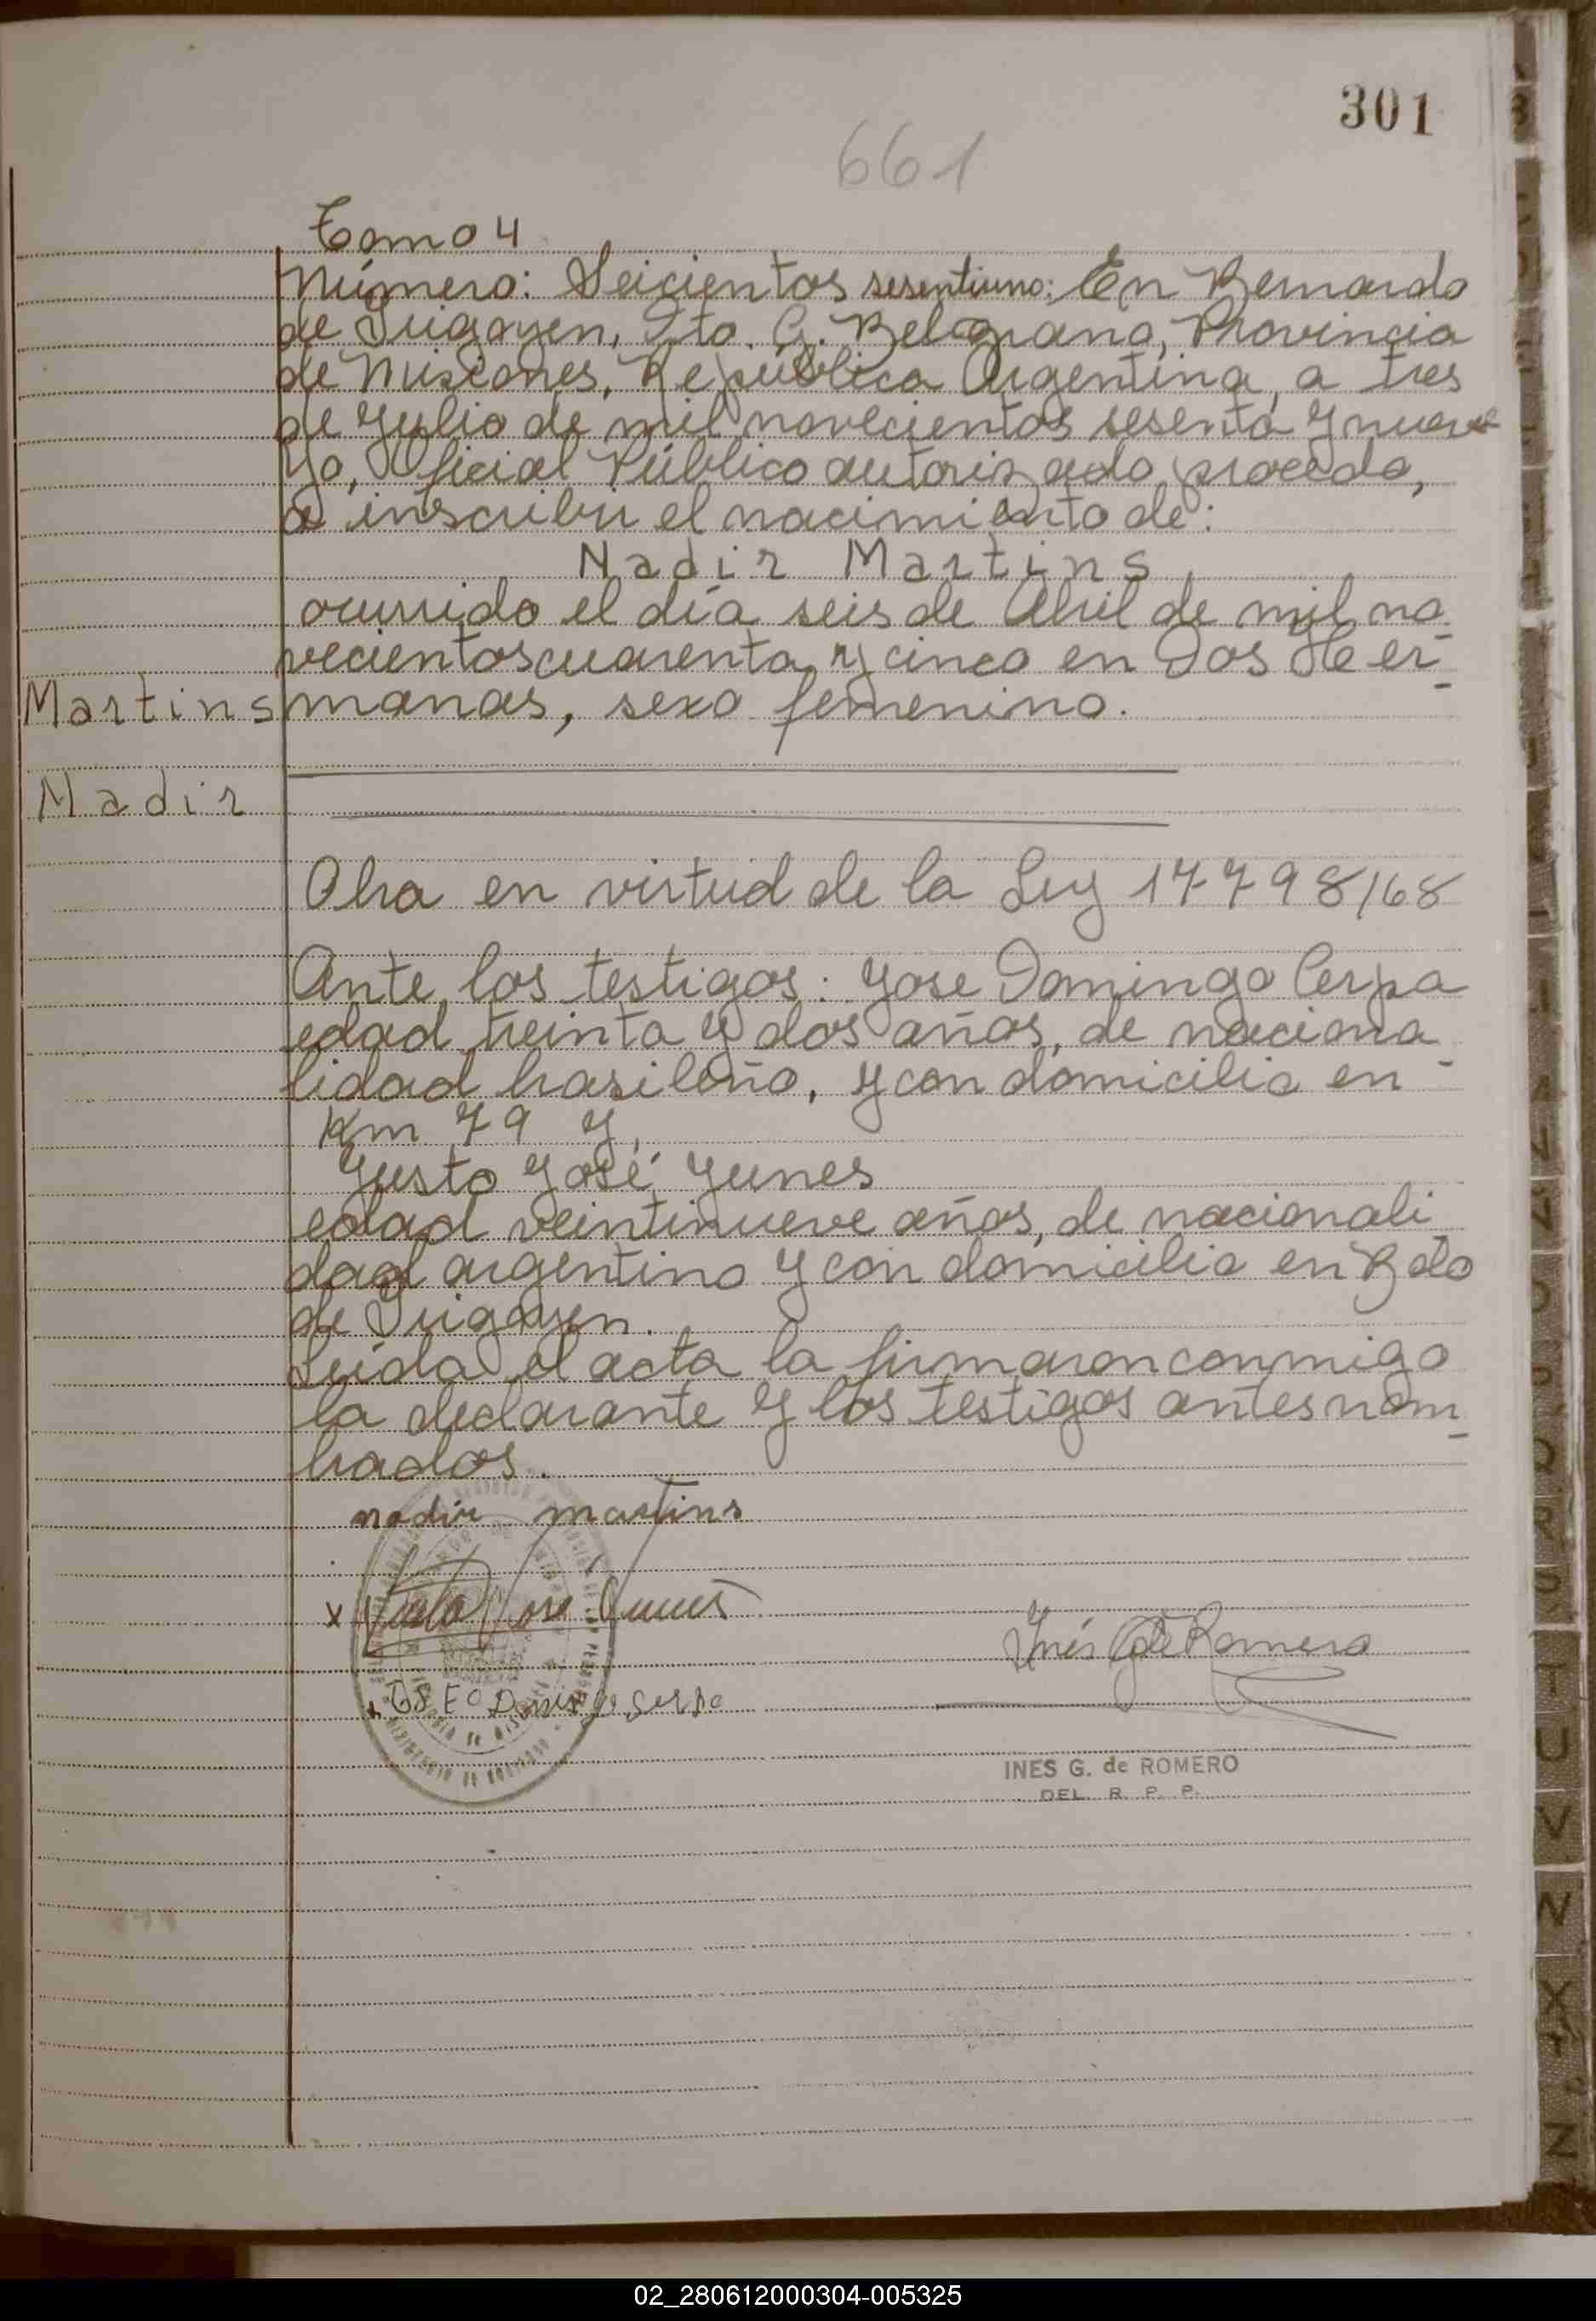 301
661
Tomo 4
Número: Seicientos sesentiuno: En Bernardo
de Irigoyen, Dto. G. Belgrano, Provincia
de Misiones, República Argentina, a tres
de Julio de mil novecientos sesenta y nueve
Yo, Oficial Público autorizado procedo,
a inscribir el nacimiento de:
Nadir Martins
ocurrido el día seis de Abril de mil no
vecientos cuarenta y cinco en Dos Heer-
Martins manas, sexo femenino.
Madir
Obra en virtud de la Ley 17798/68
Ante los testigos: Jose Domingo Cerpa
edad treinta y dos años, de naciona-
lidad brasileño, y con domicilio en
Km 79 y,
Justo José Yunes
edad veintinueve años, de nacionali
dad argentino y con domicilio en Bdo
de Irigoyen.
Leída el acta la firmaron conmigo
la declarante y los testigos antes nom-
brados.
nadir martins
x Justo Jose Yunes
Inés G de Romero
x Domingo Serpa
INES G. de ROMERO
DEL. R. P. P.
A
B
C
D
R
S
T
U
V
X
Y
Z
02_280612000304-005325